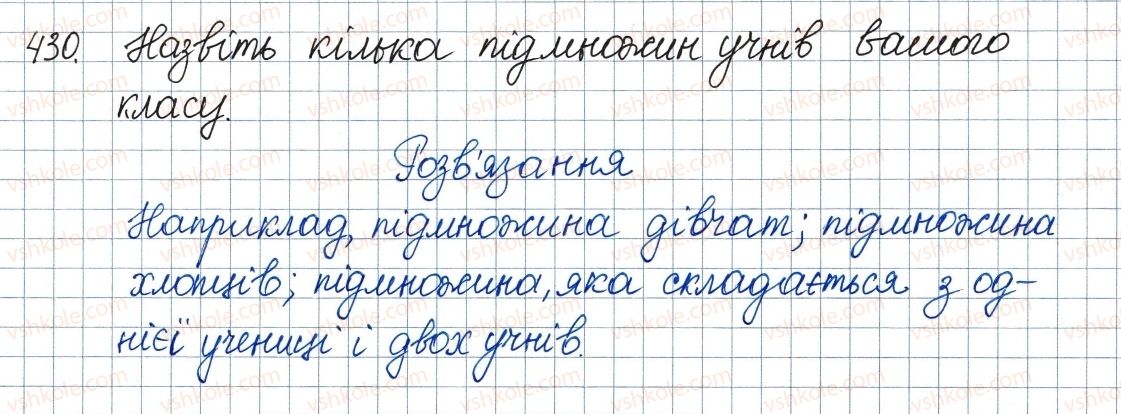 430. Назвіть кілька підмножин учнів вашого
класу.
Розв'язання
Наприклад, підмножина дівчат; підмножина
хлопців; підмножина, яка складається з од-
нієї учениці і двох учнів.